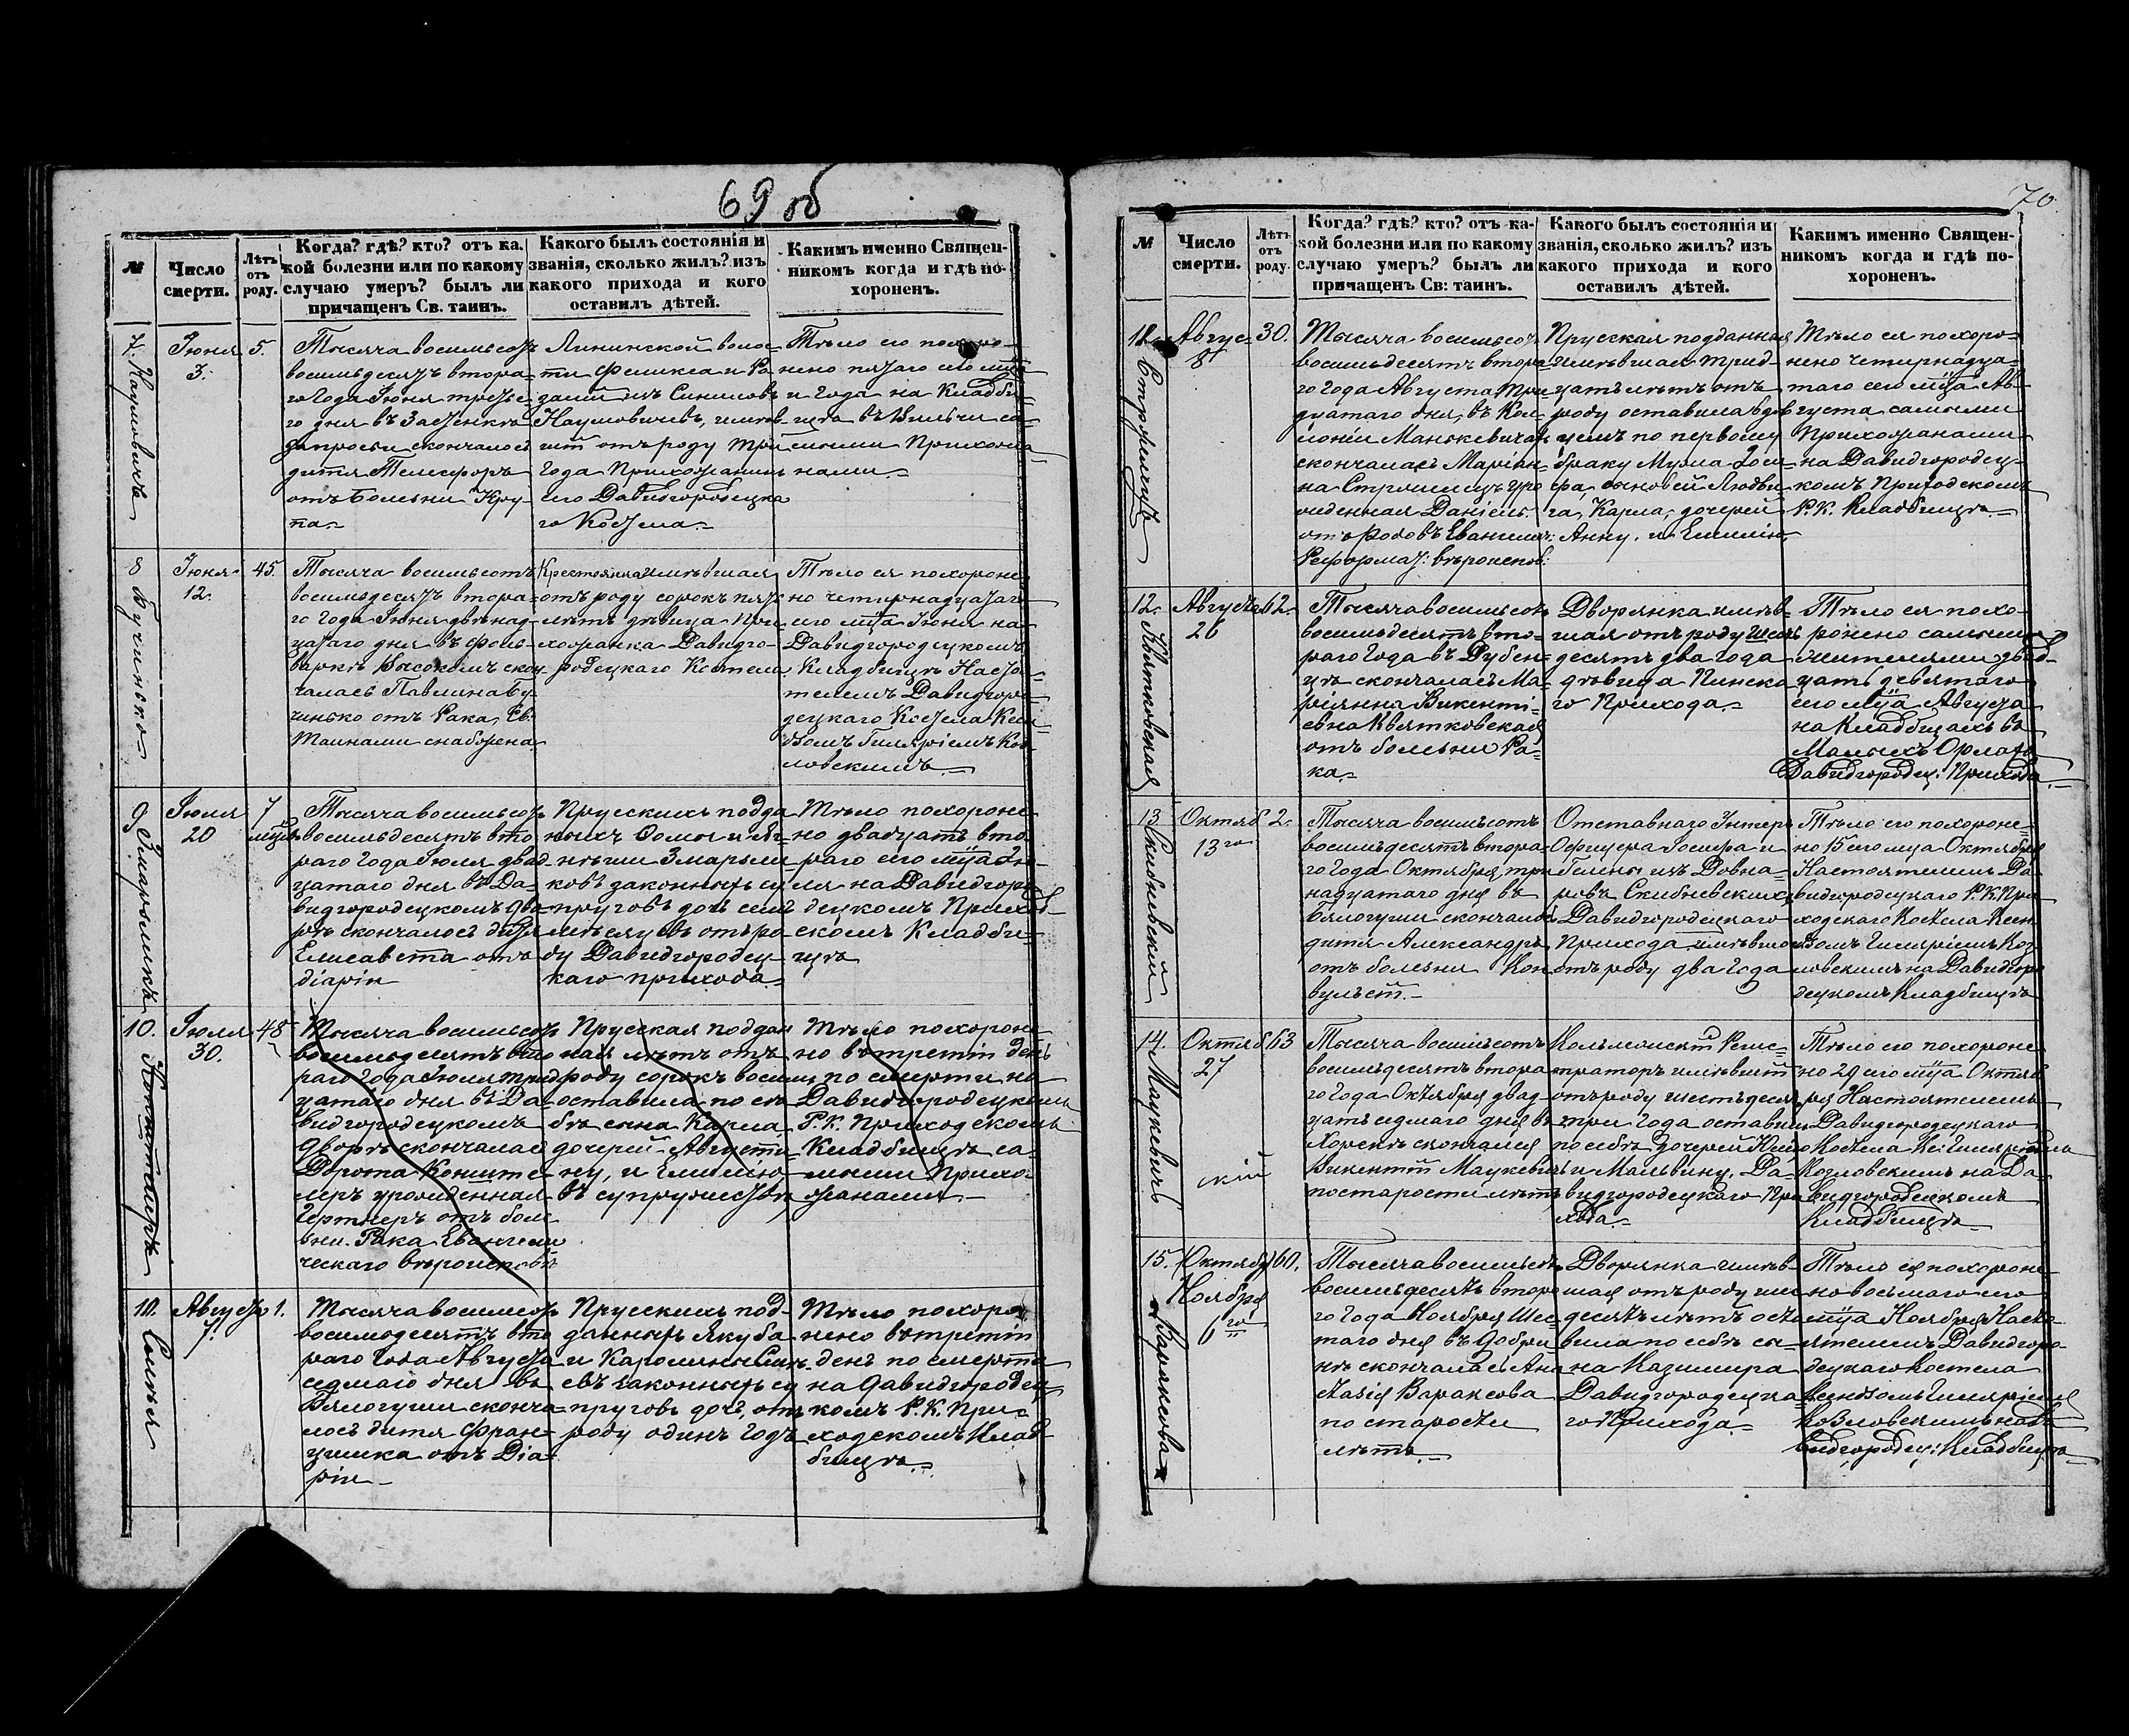 69 об
№
Число смерти.
Лѣтъ отъ роду.
Когда? гдѣ? кто? отъ ка-
кой болезни или по какому
случаю умеръ? былъ ли
причащенъ Св. таинъ.
Какого былъ состоянія и
званія, сколько жилъ? изъ
какого прихода и кого
оставилъ дѣтей.
Какимъ именно Священ-
никомъ когда и гдѣ по-
хороненъ.
7.
Наумовичъ
Іюня
3.
5.
Тысяча восемьсотъ
восемьдесятъ втора-
го Года Іюня третья-
го дня въ Застѣнкѣ
скончалось
дитя Телесфоръ
отъ Болезни Кру-
па
Лининской волос-
ти Феликса и Ро
заліи изъ
Наумовичевъ, имѣв-
шій отъ роду три
Года Прихожанинъ
его Давидгородецка
го Костела
Тѣло его похоро-
нено пятаго сего мца
и Года на Кладби-
щѣ въ са-
мыми Прихожа
нами
8
Бучинько
Іюня
12.
45.
Тысяча восемьсотъ
восемьдесятъ втора-
го Года Іюня двѣнад-
цатаго дня въ Фоль-
варкѣ Высокомъ скон-
чалась Павлина Бу-
чинько отъ Рака, Св.
Таинами снабжена
Крестьянка имѣвшая
отъ роду сорокъ пять
лѣтъ дѣвица При
хожанка Давидго-
родецкаго Костела
Тѣло ея похороне
но четырнадцатаго
сего мца Іюня на
Давидгородецкомъ
Кладбищѣ Насто-
ятелемъ Давидгоро-
децкаго Костела Ксен
дзомъ Гиляріемъ Коз
ловскимъ
9
Змарзликъ
Іюля
20
7
мцевъ
Тысяча восемьсотъ
восемьдесятъ вто
раго Года Іюля двад
цатаго дня въ Да-
видгородецкомъ Дво-
рѣ скончалось дитя
Елисавета отъ
діаріи
Прусскихъ подда
ныхъ Фомы и Аг-
нѣши Змарзли-
ковъ законныхъ су
пруговъ дочь семь
мѣсяцевъ отъ ро-
ду Давидгородец-
каго прихода
Тѣло похороне
но двадцать вто
раго сего мца Ію-
ля на Давидгоро
децкомъ Приход-
скомъ Кладби-
щѣ
10.
Іюля
30.
48
Тысяча восемьсотъ
восемьдесятъ вто
раго Года Іюля трид
цатаго дня въ Да-
видгородецкомъ
Дворѣ скончалась
Дорота
урожденная
Гертнеръ отъ боле
зни Рака Евангели
ческаго вѣроисповѣ
Прусская поддан
ная лѣтъ отъ
роду сорокъ восемь
оставила по се-
бѣ сына Карла,
дочерей Августи-
ну, и Емилію
въ супружествѣ
Тѣло похороне
но въ третій день
по смерти на
Давидгородецкомъ
Р. К. Приходскомъ
Кладбищѣ са-
мыми Прихо-
жанами
10.
Августа
7.
1.
Тысяча восемьсотъ
восемьдесятъ вто
раго Года Августа
седмаго дня въ
Бялогуши сконча-
лось дитя Фран-
цишка отъ Діа-
ріи
Прусскихъ под-
данныхъ Якуба
и Каролины
законныхъ су
пруговъ дочь, отъ
роду одинъ Годъ
Тѣло похоро
нено въ третій
день по смерти
на Давидгородец
комъ Р. К. При-
ходскомъ Клад-
бищѣ
70.
№
Число смерти.
Лѣтъ отъ роду.
Когда? гдѣ? кто? отъ ка-
кой болезни или по какому
случаю умеръ? былъ ли
причащенъ Св: таинъ.
Какого былъ состоянія и
званія, сколько жилъ? изъ
какого прихода и кого
оставилъ дѣтей.
Какимъ именно Священ-
никомъ когда и гдѣ по-
хороненъ.
Август
8
30.
Тысяча восемьсотъ
восемьдесятъ втора-
го Года Августа
дня, въ Кол-
лоніи Манькевичахъ
скончалась Маріан-
на уро
жденная Даніель
отъ родовъ Евангели:
Реформат: вѣроиспов:
Прусская подданная
имѣвшая трид-
цать лѣтъ отъ
роду оставила
по первому
браку Мужа Іосе
фа, сыновей Людви-
га, Карла, дочерей
Анну, и Емилію
Тѣло ея похоро-
нено четырнадца-
таго сего мца Ав-
густа самыми
Прихожанами
на Давидгородец-
комъ Приходскомъ
Р. К. Кладбищѣ
12.
Квятковская
Августа
26
62.
Тысяча восемьсотъ
восемьдесятъ вто-
раго Года въ Дубен-
цѣ скончалась Ма-
ріянна Викенті-
евна Квятковская
отъ болезни Ра-
ка
Дворянка имѣв-
шая отъ роду шесть
десятъ два Года
дѣвица Пинска
го Прихода
Тѣло ея похо-
ронено самыми
жителями двад-
цать девятаго
сего мца Августа
на Кладбищахъ въ
Малыхъ Орлахъ
Давидгородец: Прихода
13.
Скибневскій
Октяб
13го
2.
Тысяча восемьсотъ
восемьдесятъ втора-
го Года Октября три
надцатаго дня въ
Бялогуши скончалось
дитя Александръ
отъ болезни Кон
вульсій
Отставнаго Унтеръ
Офицера Іосифа и
Гелены изъ Довна-
ровъ Скибневскихъ
Давидгородецкаго
Прихода имѣвшій
отъ роду два Года
Тѣло его похороне-
но 15 сего мца Октября
Настоятелемъ Да
видгородецкаго Р. К. При
ходскаго Костела Ксен
дзомъ Гиляріемъ Коз
ловскимъ на Давидгоро
децкомъ Кладбищѣ
14.
Мацкевичъ
Октяб
27
63
Тысяча восемьсотъ
восемьдесятъ втора
го Года Октября двад-
цать седмаго дня въ
Хорскѣ скончался
Викентій Мацкевичъ
по старости лѣтъ
Кольлежскій Регис-
траторъ имѣвшій
отъ роду шестьдесятъ
три года оставилъ
по себѣ дочерей Юлію
и Мальвину, Да-
видгородецкаго При
хода
Тѣло его похороне
но 29 сего мца Октяб
ря Настоятелемъ
Давидгородецкаго
Костела Кс: Гиляріемъ
Козловскимъ на Да-
видгородецкомъ
Кладбищѣ
15.
Вараксова
Октября
Ноября
6го
60.
Тысяча восемьсотъ
восемьдесятъ второ
го Года Ноября Шес
таго дня въ
скончалась Ана
стазія Вараксова
по старости
лѣтъ
Дворянка имѣв-
шая отъ роду шес
десятъ лѣтъ оста
вила по себѣ сы-
на Казимира
Давидгородецка
го Прихода
Тѣло ея похороне
но восьмаго сего
мца Ноября Насто
ятелемъ Давидгоро-
децкаго Костела
Ксендзомъ Гиляріемъ
Козловскимъ на Да
видгородец: Кладбищѣ